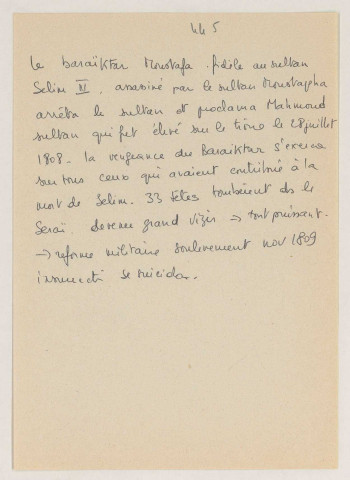 445
Le baraïktar Moustafa fidèle au sultan
Selim III, assassiné par le sultan Moustapha
arrêta le sultan et proclama Mahmoud
sultan qui fut élevé sur le trône le 28 juillet
1808. La vengeance du Baraïktar s'exerça
sur tous ceux qui avaient contribué à la
mort de Selim. 33 têtes tombèrent ds le
Seraï. Devenu grand vizir → tout puissant.
→ réforme militaire soulèvement nov 1809
insurrecti se suicida.